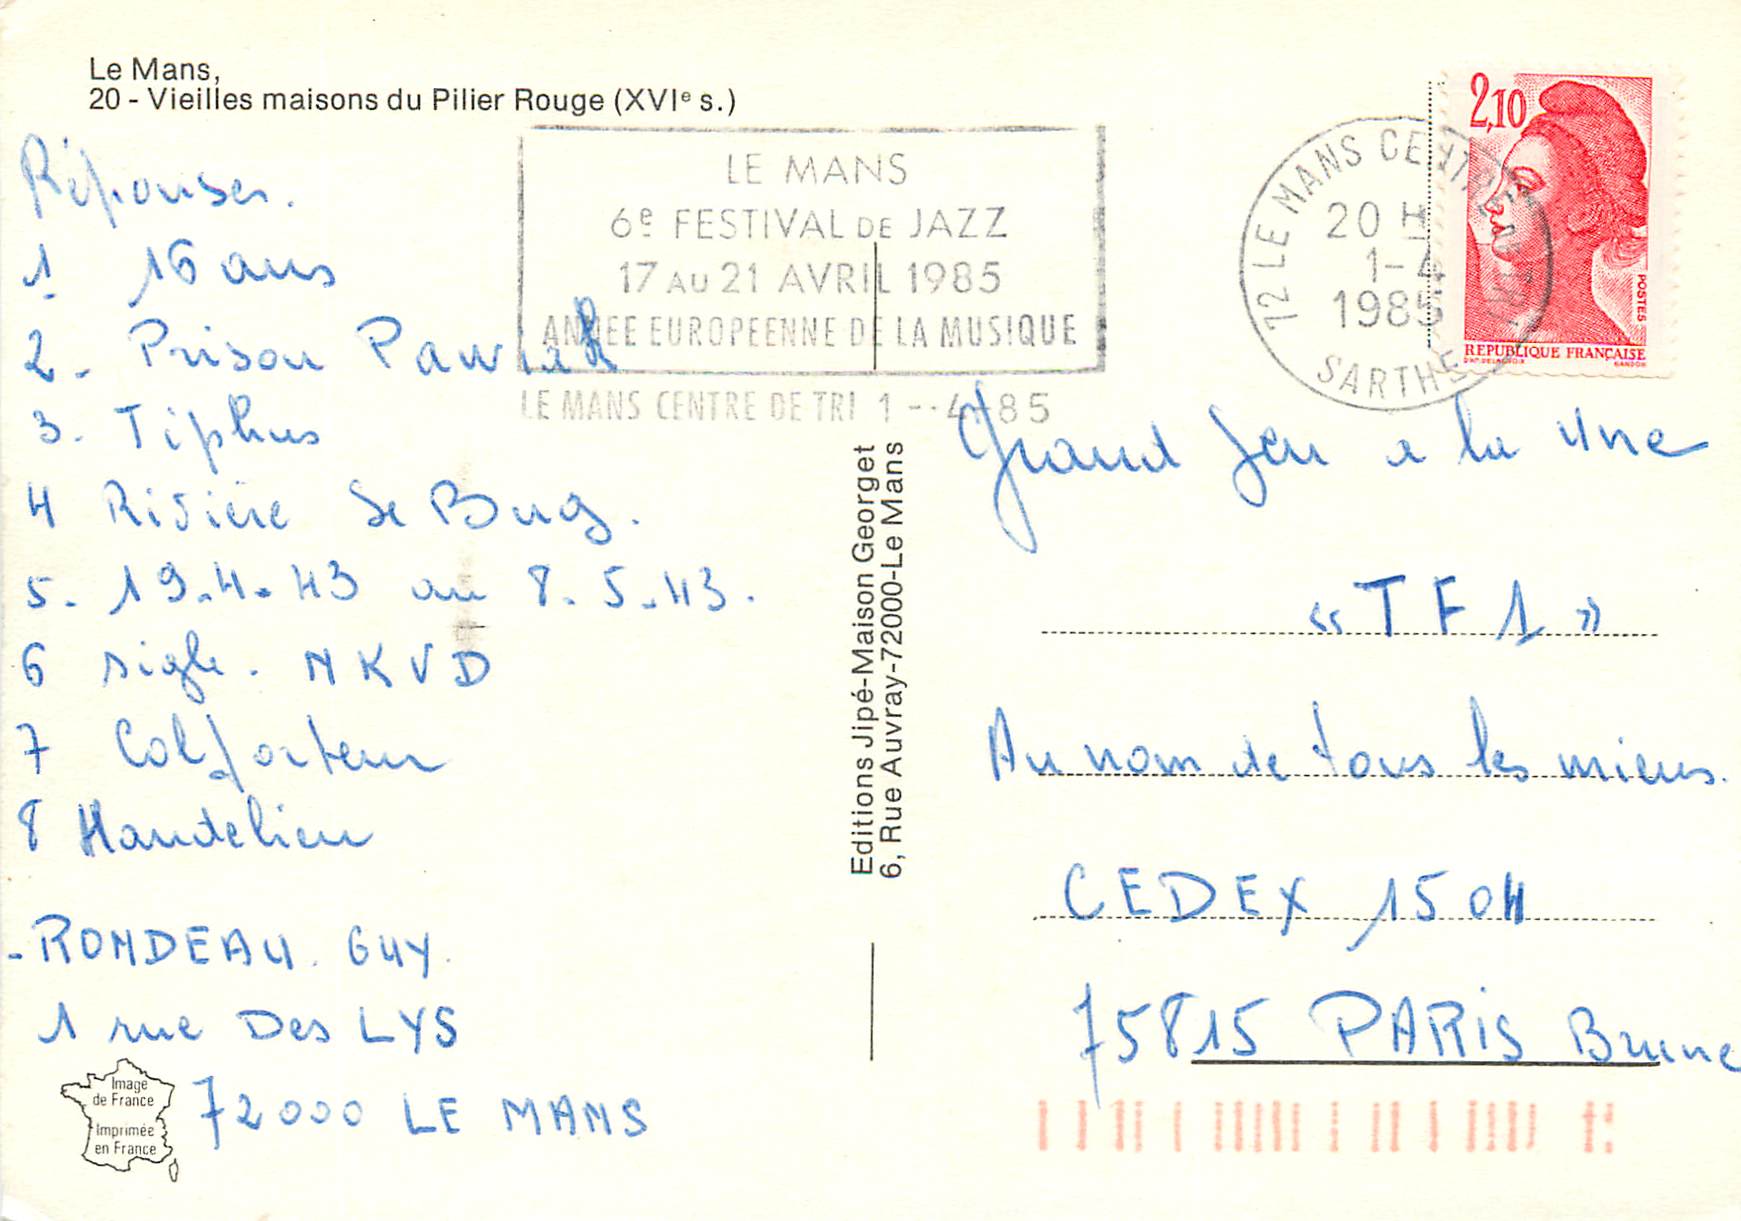 Le Mans,
20 - Vieilles maisons du Pilier Rouge (XVIe s.)
Réponses.
1. 16 ans
2. Prison Pawiak
3. Tiphus
4 Rivière Le Bug.
5. 19.4.43 au 8.5.43.
6 sigle. NKVD
7 Colporteur
8 Mandelieu
- RONDEAU. GUY.
1 rue Des LYS
72000 LE MANS
Image
de France
Imprimée
en France
LE MANS
6e FESTIVAL DE JAZZ
17 AU 21 AVRIL 1985
ANNEE EUROPEENNE DE LA MUSIQUE
LE MANS CENTRE DE TRI 1 - - 4 - 85
Editions Jipé-Maison Georget
6, Rue Auvray-72000-Le Mans
72 LE MANS CENTRE DE TRI
20 H
1-4
1985
SARTHE
2,10
POSTES
REPUBLIQUE FRANÇAISE
D'AP. DELACROIX GANDON
Grand Jeu a la Une
« TF1 »
Au nom de tous les miens.
CEDEX 1504
75815 PARIS Brune